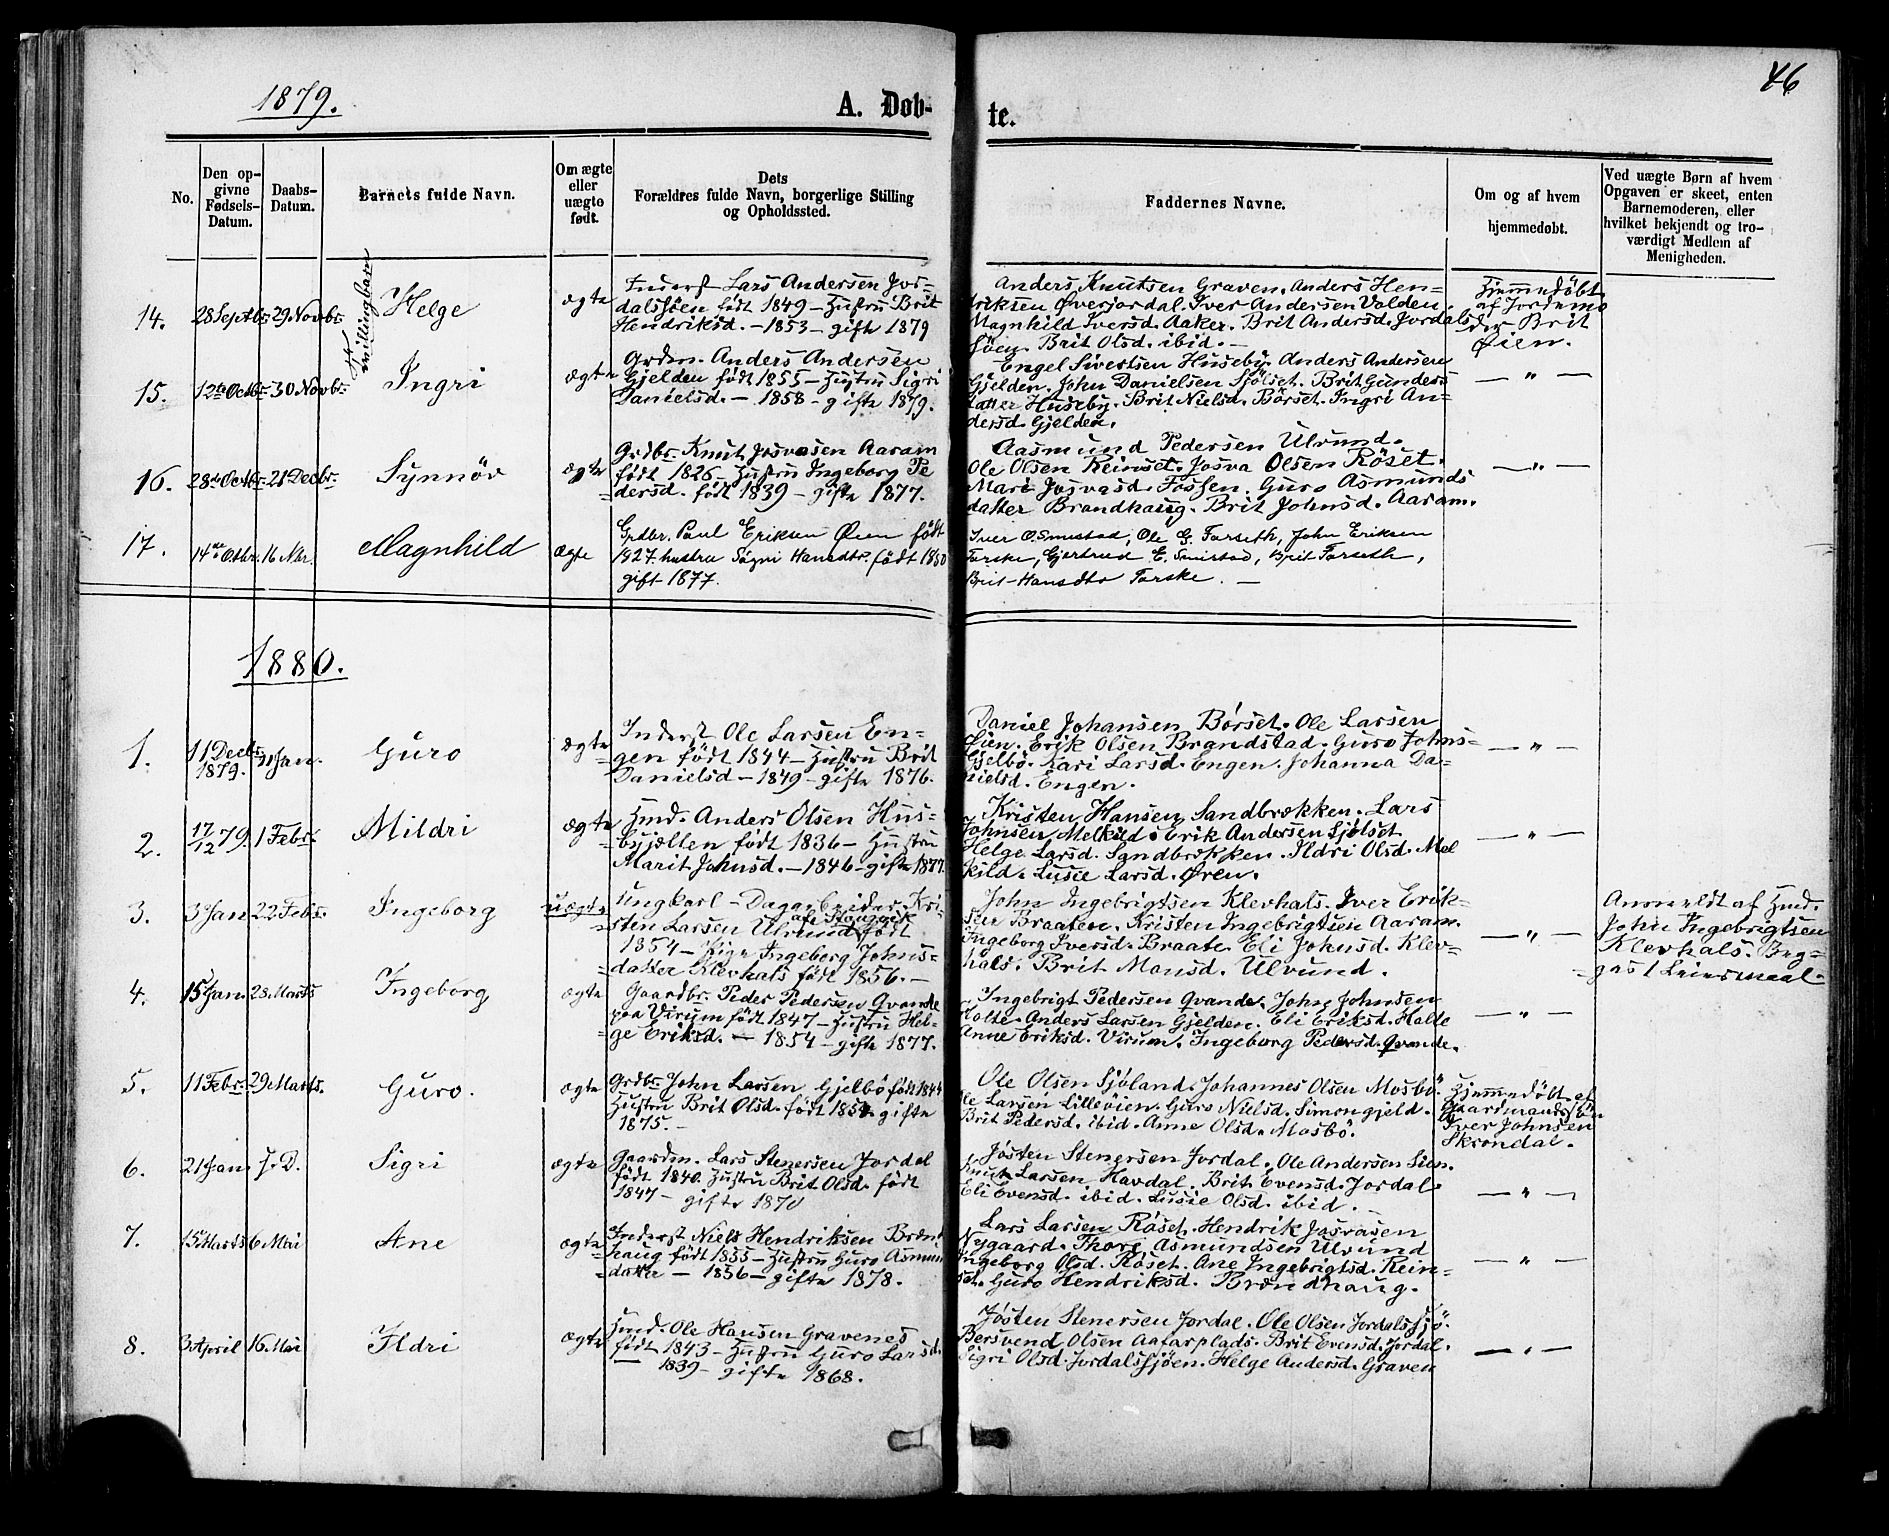 1879.
A. Døb-
te.
46
No.
Den op-
givne
Fødsels-
Datum.
Daabs-
Datum.
Barnets fulde Navn.
Om ægte
eller
uægte
født.
Dets
Forældres fulde Navn, borgerlige Stilling
og Opholdssted.
Faddernes Navne.
Om og af hvem
hjemmedøbt.
Ved uægte Børn af hvem
Opgaven er skeet, enten
Barnemoderen, eller
hvilket bekjendt og tro-
værdigt Medlem af
Menigheden.
14.
28 Septbr.
29 Novbr.
Tvillingbarn
Helge
ægte
Inderst Lars Andersen Jor-
dalssjöen født 1849 - Hustru Brit
Hendriksd. - 1853 - gift 1879
Anders Knutsen Graven. Anders Hen-
driksen Øverjordal. Iver Andersen Volden.
Magnhild Iversd. Aaker. Brit Andersd. Jordals-
sjöen. Brit Olsd. ibid. -
Hjemmedöbt
af Jordemo
der Brit
Øien.
15.
12te Octbr.
30 Novbr.
Ingri
ægte
Grdm. Anders Andersen
Gjelden født 1855 - Hustru Sigri
Danielsd. - 1858 - gifte 1879.
Engel Sivertsen Huseby. Anders Andersen
Gjelden. John Danielsen Sjölset. Brit Gunders
datter Huseby. Brit Nielsd. Börset. Ingri An-
dersd. Gjelden.
— " —
16.
28de Octbr.
21 Decbr.
Synnöv
ægte
Grdbr. Knut Josvasen Aaram
født 1826 - Hustru Ingeborg Pe
dersd. født 1839 - gifte 1877.
Aasmund Pedersen Ulvund.
Ole Olsen Reinset. Josva Olsen Röset.
Mari Josvasd. Fossen. Guro Asmunds
datter Brandhaug. Brit Johnsd. Aaram.
— " —
17.
14de Octbr.
16 Nbr.
Magnhild
ægte
Grdbr. Paul Eriksen Øien født
1827. hustru Sögni Hansdtr. født 1850
gift 1877.
Iver O. Smistad, Ole G. Farseth, John Eriksen
Farske, Gjertrud E. Smistad, Brit Farseth,
Brit Hansdtr Farske. —
1880.
1.
11 Decbr.
1879.
Jan.
Guro
ægte
Inderst Ole Larsen En-
gen født 1844 - Hustru Brit
Danielsd - 1849 - gifte 1876.
Daniel Johansen Börset. Ole Larsen
Øien. Erik Olsen Brandstad. Guro Johns-
Gjelbö. Kari Larsd. Engen. Johanna Da-
nielsd. Engen.
— " —
2.
17/12 79.
1 Febr.
Mildri
ægte
Hmd. Anders Olsen Hus-
byjælten født 1836 - Hustru
Marit Johnsd. - 1846 - gifte 1877.
Kristen Hansen Sandbrækken. Lars
Johnsen Melkild. Erik Andersen Sjölset
Helge Larsd. Sandbrækken. Ildri Olsd. Mel
kild. Lusie Larsd. Øren.
— " —
3.
3 Jan
22 Febr.
Ingeborg
uægte
Ungkarl - Dagarbeider Kri-
sten Larsen Ulvund født
1854 - Pige Ingeborg Johns-
datter Klevhals født 1856. -
John Ingebrigtsen Klevhals. Iver Erik-
sen Braaten. Kristen Ingebrigtsen Aaram.
Ingeborg Iversd. Braate. Eli Johnsd. Klev-
hals. Brit Monsd. Ulvund.
— " —
Anmeldt af Hmd.
John Ingebrigtsen
Klevhals. Beg-
ges 1 Leiersmaal.
4.
15 Jan.
28 Marts
Ingeborg
ægte
Gaardbr. Peder Pedersen Qvande
paa Virum født 1847 - Hustru Hel-
ge Eriksd. - 1854 - gifte 1877.
Ingebrigt Pedersen Qvande. John Johnsen
Holte. Anders Larsen Gjelden. Eli Eriksd. Halle
Anne Eriksd. Virum. Ingeborg Pedersd. Qvande.
— " —
5.
11 Febr.
29 Marts.
Guro.
ægte
Grdbr. John Larsen Gjelbö født 1844
Hustru Brit Olsd. født 1851 gifte
1875. -
Ole Olsen Sjøland. Johannes Olsen Mosbö.
Ole Larsen Lilleöien. Guro Nielsd. Simongjeld.
Brit Pedersd. ibid. Anne Olsd. Mosbö.
Hjemmedöbt af
Gaardmandssön
Iver Johnsen
Skrondal.
6.
21 Jan.
s. D.
Sigri
ægte
Gaardm. Lars Stenersen Jordal
født 1840. Hustru Brit Olsd. født
1847 - gifte 1870
Jøsten Stenersen Jordal. Ole Andersen Lien.
Knut Larsen Havdal. Brit Evensd. Jordal.
Eli Evensd. ibid. Lusie Olsd. ibid. —
— " —
7.
15 Marts
6 Mai
Ane
ægte
Inderst Niels Hendriksen Brand
haug født 1855 - Hustru Guro Asmun
datter - 1856 - gifte 1878.
Lars Larsen Röset. Hendrik Josvasen
Nygaard. Thore Asmundsen Ulvund
Ingeborg Olsd. Röset. Ane Ingebrigtsd. Rein-
set. Guro Hendriksd. Brandhaug.
— " —
8.
3 April
16 Mai
Ildri
ægte
Hmd. Ole Hansen Gravenes
født 1843 - Hustru Guro Larsd.
— 1839 - gifte 1868.
Jösten Stenersen Jordal. Ole Olsen Jordalssjö.
Bersvend Olsen Aafarplads. Brit Evensd. Jordal.
Sigri Olsd. Jordalssjöen. Helge Andersd. Graven
— " —